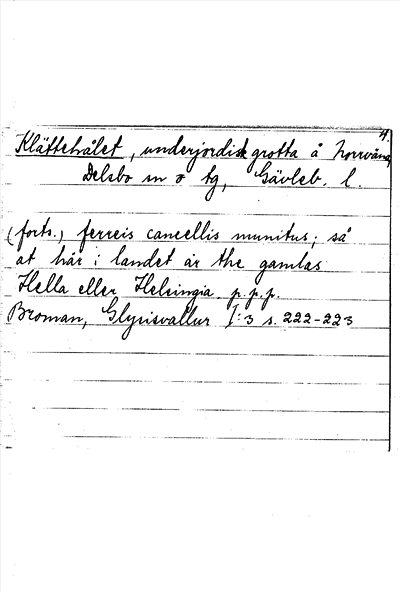 4.
Klättehålet, underjordisk grotta å Norrväna,
Delsbo sn o tg, Gävleb. l.
(forts.) ferreis cancellis munitus; så
at här i landet är the gamlas
Hella eller Helsingia. p.p.p.
Broman, Glysisvallur I:3 s. 222-223